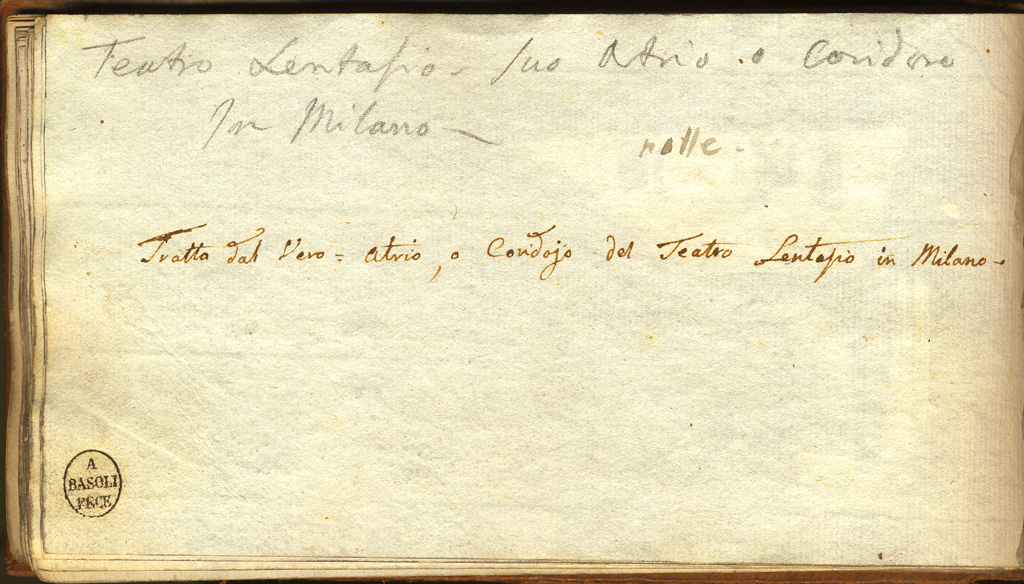 Teatro Lentasio - suo Atrio o Coridore
In Milano -
notte -
Tratta dal Vero = Atrio, o Coridojo del Teatro Lentasio in Milano -
A
BASOLI
FECE